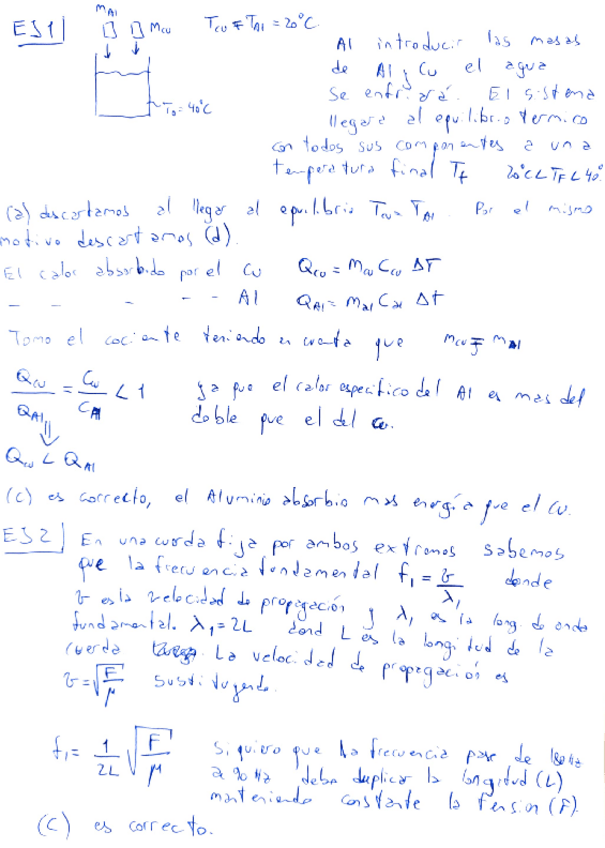 EJ1
m_Al m_Cu T_Cu = T_Al = 20°C.
T_0 = 40°C
Al introducir las masas
de Al y Cu el agua
se enfriará. El sistema
llegara al equilibrio termico
con todos sus componentes a una
temperatura final T_f 20°C < T_F < 40°
(a) descartamos al llegar al equilibrio T_Cu = T_Al. Por el mismo
motivo descartamos (d).
El calor absorbido por el Cu Q_Cu = m_Cu C_Cu ΔT
– – – – – Al Q_Al = m_Al C_Al Δt
Tomo el cociente teniendo en cuenta que m_Cu = m_Al
Q_Cu / Q_Al = C_Cu / C_Al < 1 ya que el calor especifico del Al es mas del
doble que el del Cu.
⇓
Q_Cu < Q_Al
(C) es correcto, el Aluminio absorbio mas energía que el Cu.
EJ2 En una cuerda fija por ambos extremos sabemos
que la frecuencia fundamental f_1 = v/λ_1 donde
v es la velocidad de propagación y λ_1 es la long. de onda
fundamental. λ_1 = 2L dond L es la longitud de la
cuerda. La velocidad de propagación es
v = √(F/μ) sustituyendo.
f_1 = 1/2L √(F/μ) Si quiero que la frecuencia pase de 180 Hz
a 90 Hz debo duplicar la longitud (L)
manteniendo constante la Tension (F).
(C) es correcto.